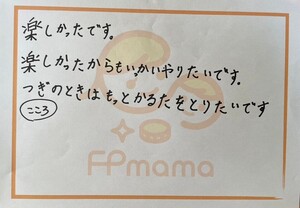 楽しかったです。
楽しかったからもいっかいやりたいです。
つぎのときはもっとかるたをとりたいです
こころ
FPmama